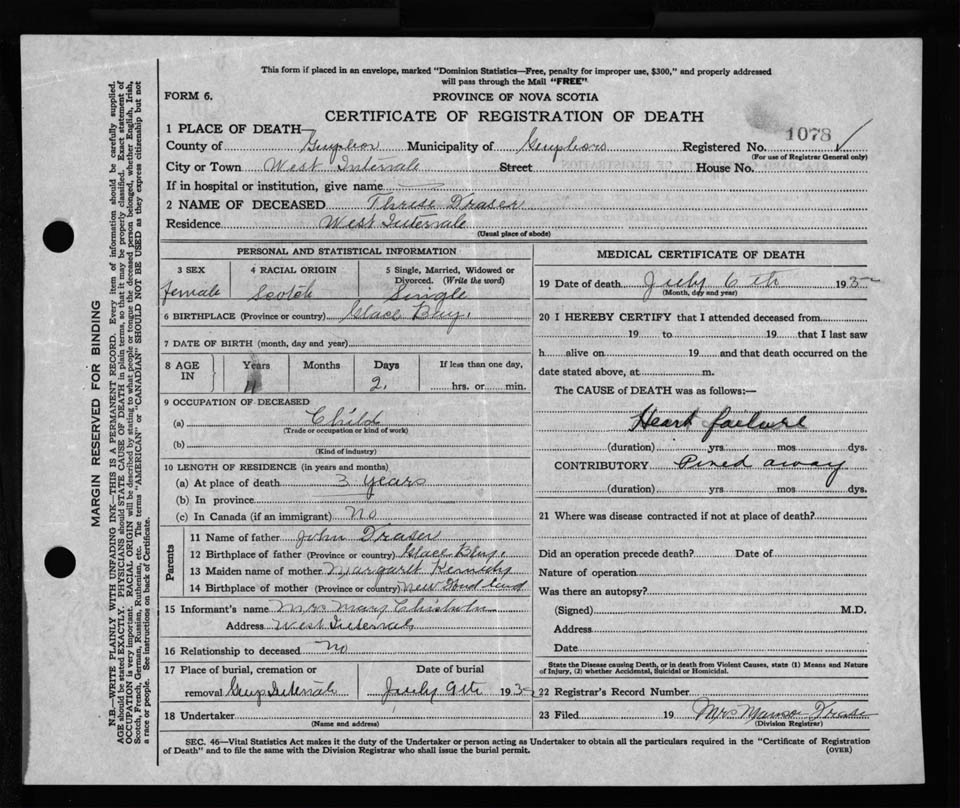 This form if placed in an envelope, marked "Dominion Statistics—Free, penalty for improper use, $300," and properly addressed
will pass through the Mail "FREE"
FORM 6.
PROVINCE OF NOVA SCOTIA
CERTIFICATE OF REGISTRATION OF DEATH
1078
1 PLACE OF DEATH—
County of Municipality of Registered No.
(For use of Registrar General only)
City or Town West Intervale Street House No.
If in hospital or institution, give name
2 NAME OF DECEASED
Residence West Intervale
(Usual place of abode)
PERSONAL AND STATISTICAL INFORMATION
3 SEX 4 RACIAL ORIGIN 5 Single, Married, Widowed or Divorced. (Write the word)
female Scotch Single
6 BIRTHPLACE (Province or country) Glace Bay.
7 DATE OF BIRTH (month, day and year)
8 AGE IN Years Months Days If less than one day,
11 2 hrs. or min.
9 OCCUPATION OF DECEASED
(a) Child
(Trade or occupation or kind of work)
(b)
(Kind of industry)
10 LENGTH OF RESIDENCE (in years and months)
(a) At place of death 3 years
(b) In province
(c) In Canada (if an immigrant) No
Parents
11 Name of father John Fraser
12 Birthplace of father (Province or country) Glace Bay.
13 Maiden name of mother Margaret Kennedy
14 Birthplace of mother (Province or country) New Found land
15 Informant's name Mrs Mary Chisholm
Address West Intervale
16 Relationship to deceased no
17 Place of burial, cremation or Date of burial
removal July 9th 193
18 Undertaker
(Name and address)
MEDICAL CERTIFICATE OF DEATH
19 Date of death July 6 th 193
(Month, day and year)
20 I HEREBY CERTIFY that I attended deceased from
19 to 19 that I last saw
h alive on 19 and that death occurred on the
date stated above, at m.
The CAUSE of DEATH was as follows:—
Heart failure
(duration) yrs mos dys.
CONTRIBUTORY Pined away
(duration) yrs mos dys.
21 Where was disease contracted if not at place of death?
Did an operation precede death? Date of
Nature of operation
Was there an autopsy?
(Signed) M.D.
Address
Date
State the Disease causing Death, or in death from Violent Causes, state (1) Means and Nature
of Injury, (2) whether Accidental, Suicidal or Homicidal.
22 Registrar's Record Number
23 Filed 19 Mrs
(Division Registrar)
SEC. 46—Vital Statistics Act makes it the duty of the Undertaker or person acting as Undertaker to obtain all the particulars required in the "Certificate of Registration
of Death" and to file the same with the Division Registrar who shall issue the burial permit. (OVER)
MARGIN RESERVED FOR BINDING
N.B.—WRITE PLAINLY WITH UNFADING INK—THIS IS A PERMANENT RECORD. Every item of information should be carefully supplied.
AGE should be stated EXACTLY. PHYSICIANS should STATE CAUSE OF DEATH in plain terms, so that it may be properly classified. Exact statement of
OCCUPATION is very important. RACIAL ORIGIN will be described by stating to what people or tongue the deceased person belonged, whether English, Irish,
Scotch, French, German, Russian, Ruthenian, etc. The terms "AMERICAN" or "CANADIAN" SHOULD NOT BE USED as they express citizenship but not
a race or people. See instructions on back of Certificate.